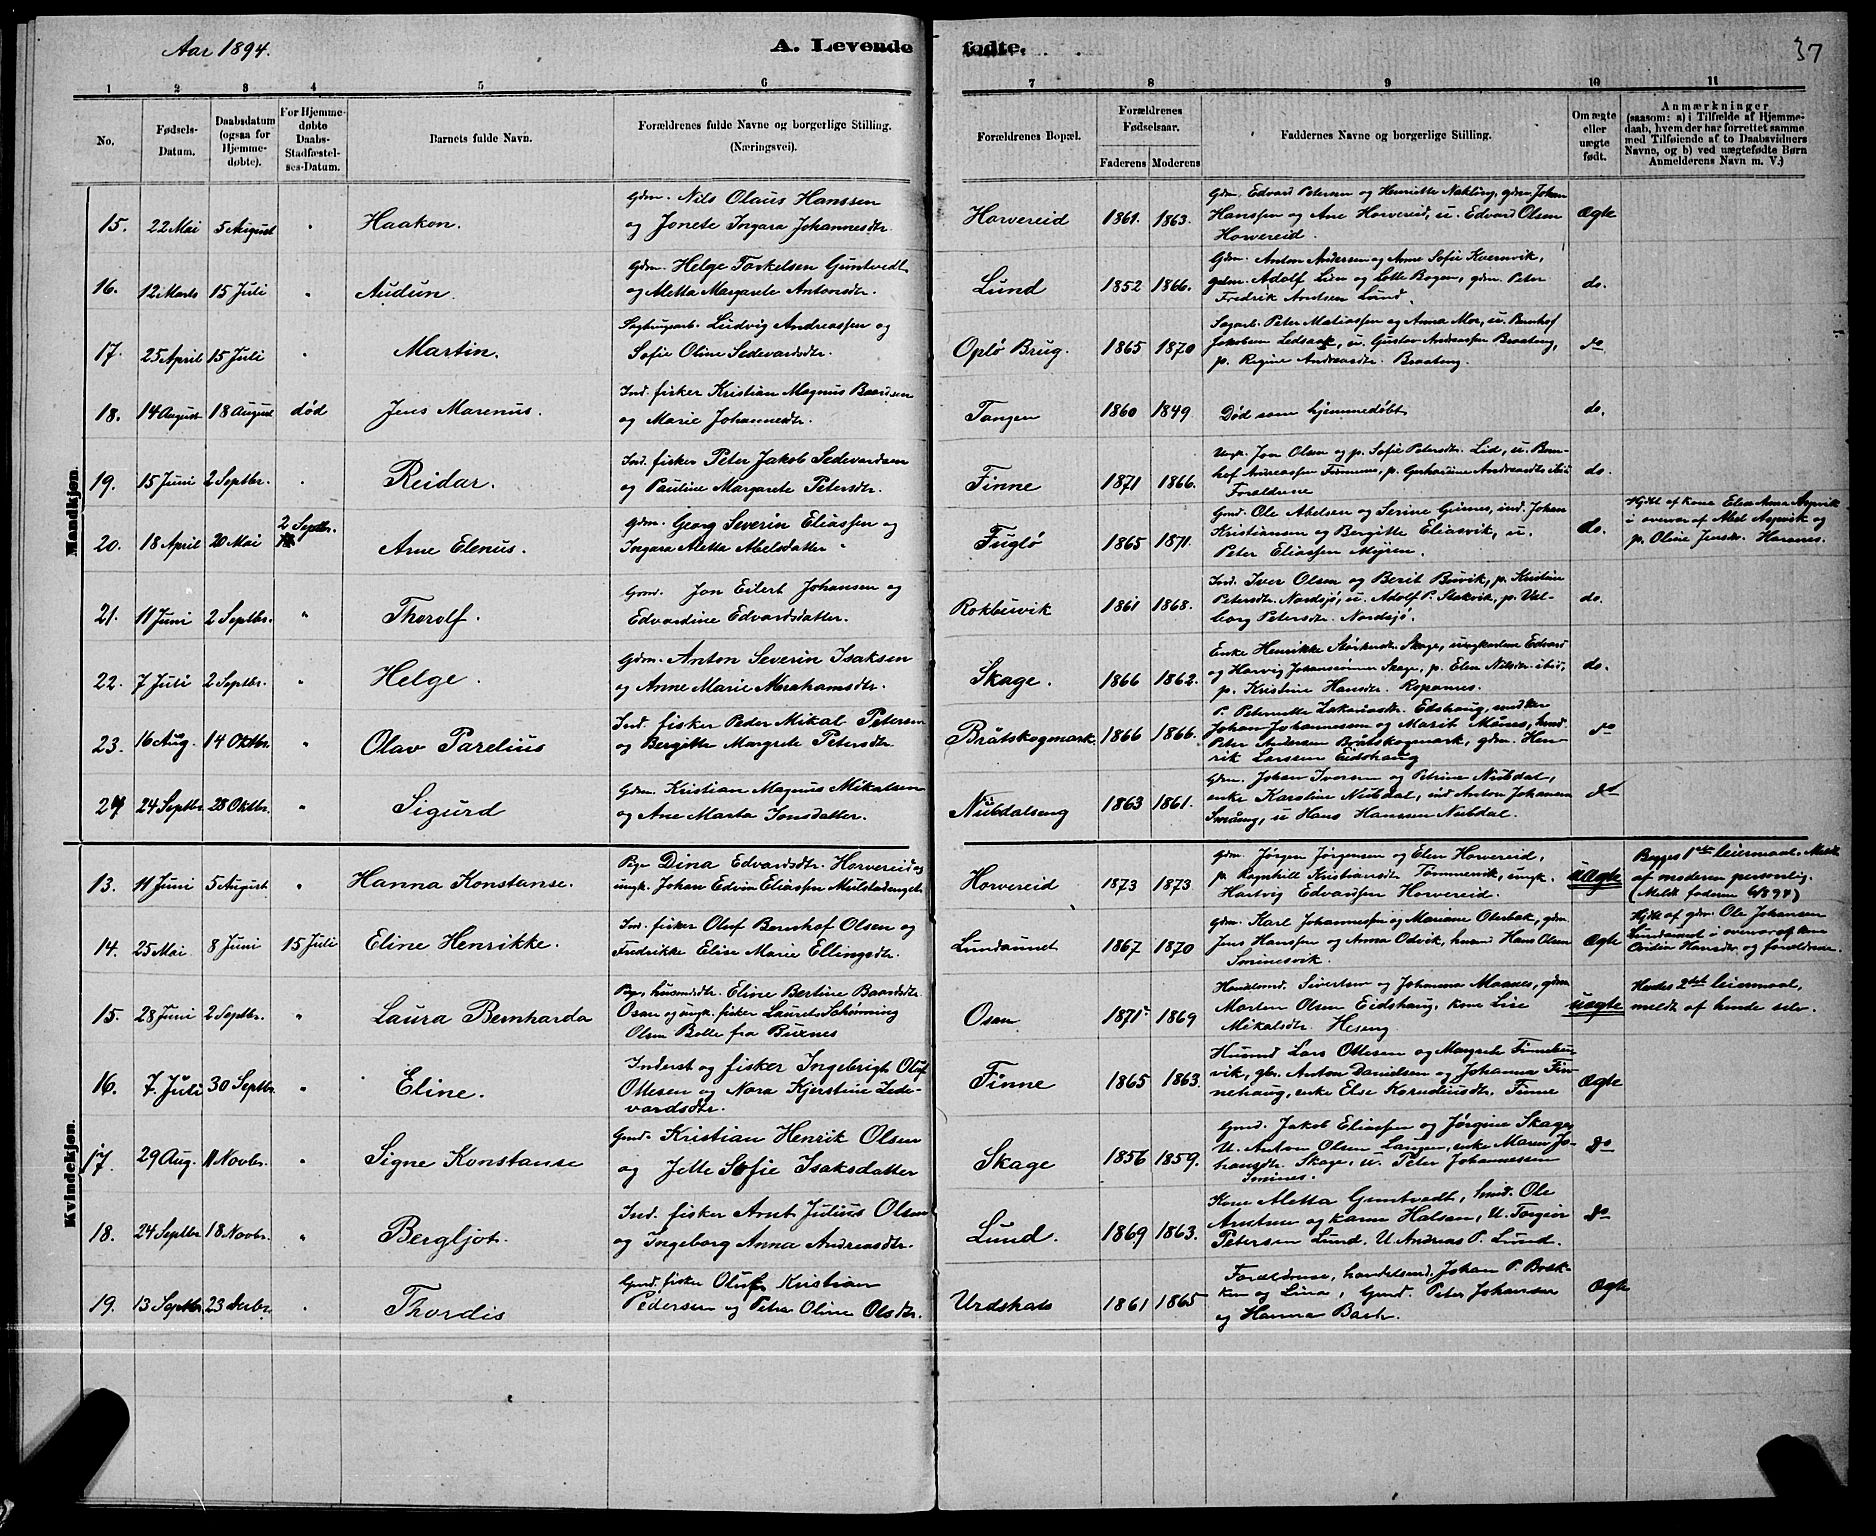 Aar 1894.
A. Levende fødte.
37
1 2 3 4 5 6 7 8 9 10 11
No.
Fødsels-Datum.
Daabsdatum (ogsaa for Hjemmedøbte).
For Hjemmedøbte Daabs-Stadfæstelses-Datum.
Barnets fulde Navn.
Forældrenes fulde Navne og borgerlige Stilling.
(Næringsvei).
Forældrenes Bopæl.
Forældrenes Fødselsaar.
Faderens Moderens
Faddernes Navne og borgerlige Stilling.
Om ægte eller uægte født.
Anmærkninger
(saasom: a) i Tilfælde af Hjemmedaab, hvem der har forrettet samme med Tilføiende af to Daabsvidners Navne, og b) ved uægtefødte Børn Anmelderens Navn m. V.)
Mandkjøn.
15. 22 Mai 5 August " Haakon.
Gdm. Nils Olaus Hanssen
og Jonete Ingara Johannesdtr.
Horvereid 1861. 1863.
Gdm. Edvard Petersen og Henriette Nakling, gdm. Johan
Hanssen og Ane Horvereid, u. Edvard Olsen
Horvereid.
Ægte
16. 12 Marts 15 Juli " Audun.
Gdm. Helge Torkelsen Guntvedt
og Aletta Margarete Antonsdtr.
Lund 1852 1866.
Gdm. Anton Andersen og Anne Sofie Kvernvik,
gdm. Adolf Lien og Lotte Bogen, gdm. Peter
Fredrik Arntsen Lund.
do.
17. 25 April 15 Juli " Martin.
Sagbrugsarb. Ludvig Andreassen og
Sofie Oline Sedevardsdtr.
Oplø Brug. 1865 1870
Sagarb. Peter Matiassen og Anna Moe, u. Bernhof
Jakobsen, u. Gustav Andreassen Braateng,
p. Regine Andreasdtr. Braateng.
do
18. 14 August 18 August død Jens Marenus.
Ind. fisker Kristian Magnus Baardsen
og Marie Johannesdtr.
Tangen 1860 1849
Død som hjemmedøbt
do.
19. 15 Juni 2 Septbr. " Reidar.
Ind. fisker Peter Jakob Sedevardsen
og Pauline Margarete Petersdtr.
Finne 1871 1866.
Ungk. Jon Olsen og p. Sofie Petersdtr. Lid, u. Bern-
hof Andreassen Finnemo, p. Andreasdtr. ibid
Forældrene
do.
20. 18 April 20 Mai 2 Septbr. Arne Elenus.
Gdm. Georg Severin Eliassen og
Ingara Aletta Abelsdatter
Fuglø 1865 1871.
Gmd. Ole Abelsen og Serine Grinnes, ind. Johan
Kristiansen og Bergitte Eliasvik, u.
Peter Eliassen Myren.
do.
Hjdbt af kone Elen Anna Aspvik
i overvær af Abel Aspvik og
p. Oline Jensdr. Harsnes.
21. 11 Juni 2 Septbr. " Thorolf.
Gmd. Jon Eilert Johansen og
Edvardine Edvardsdatter.
Rokbuvik 1861 1868.
Ind. Iver Olsen og Berit Buvik, p. Kristine
Petersdtr. Nordsjø, u. Adolf P. Stokvik, p. Val-
borg Petersdtr. Nordsjø.
do.
22. 7 Juli 2 Septbr. " Helge.
Gdm. Anton Severin Isaksen
og Anne Marie Abrahamsdtr.
Skage. 1866 1862.
Enke Henrikke Skage, ungkarlene Edvard
og Harvig Johansønner Skage, p. Elen Nilsdtr. ibid,
p. Kristine Hansdtr. Ropanes.
do.
23. 16 Aug. 14 Oktbr. " Olav Parelius
Ind. fisker Peder Mikal Petersen
og Bergitte Margrete Petersdtr.
Bråtskogmark 1866 1866.
P. Peternette Zakariasdr. Edshaug, snedker
Johan Johannessen og Marit Månes, husmd
Peter Andersen Bråtskogmark, gdm. Hen-
rik Larssen Eidshaug
do
24 24 Septbr. 28 Oktbr. " Sigurd
Gdm. Kristian Magnus Mikalsen
og Ane Marta Jonsdatter.
Nubdalseng 1863 1861.
Gdm. Johan Iversen og Petrine Nubdal,
enke Karoline Nubdal, ind Anton Johansen
Småeng, u Hans Hanssen Nubdal.
do
Kvindekjøn.
13. 11 Juni 5 August " Hanna Konstanse.
Pige Dina Edvardsdtr. Horvereid og
ungk. Johan Edvin Eliassen
Horvereid 1873 1873
Gdm. Jørgen Jørgensen og Elen Horvereid,
p. Ragnhill Kristiansdtr. Tømmervik, ungk.
Hartvig Edvardsen Horvereid.
uægte
Begges 1ste leiermaal. Meldt
af moderen personlig.
(Meldt faderen 6/8 94)
14. 25 Mai 8 Juni 15 Juli Eline Henrikke.
Ind. fisker Oluf Bernhof Olsen og
Fredrikke Elise Marie Ellingsdtr.
Lundaunet 1867 1870
Gdm. Karl Johannessen og Mariane Oterbak, gdm.
Jens Hanssen og Anna Odvik, husmd Hans Olsen
Sminesvik.
Ægte
Hjdbt af gdm. Ole Johansen
Lundaunet i overvær af kone
Hansdr. og forældrene.
15. 28 Juni 2 Septbr. " Laura Bernharda
Pige, husmdsdtr. Eline Bertine Baardsdtr.
Osan og ungk. fisker Laurits Schønning
Olsen Bolle fra Buxnes
Osan 1871 1869
Handelsmd. Sivertsen og Johanna Maanes, gdm
Morten Olsen Eidshaug, kone Lise
Mikalsdtr. Heseng
uægte
Hendes 2det leiermaal,
meldt af hende selv.
16. 7 Juli 30 Septbr. " Eline.
Inderst og fisker Ingebrigt Oluf
Ottesen og Nora Kjerstine Sede-
vardsdtr.
Finne 1865 1863.
Husmd Lars Ottesen og Margrete Finnebu-
vik, gbr. Anton Danielsen og Johanna Fin-
nehaug, enke Else Korneliusdtr. Finne
Ægte
17. 29 Aug. 11 Novbr. " Signe Konstanse
Gmd. Kristian Henrik Olsen
og Jette Sofie Isaksdatter
Skage 1856 1859.
Gmd. Jakob Eliassen og Jørgine Skage,
U. Anton Olsen Langen, enke Maren Jo-
hansdtr. Skage, u. Peter Johannessen
Smines.
do
18. 24 Septbr. 18 Novbr. " Bergljot.
Ind. fisker Arnt Julius Olsen
og Ingeborg Anna Andreasdtr.
Lund. 1869 1863.
Kone Aletta Guntvedt, hmd. Ole
Arntsen og Karen Halsen, U. Torgeir
Petersen Lund. U. Andreas P. Lund.
do
19. 13 Septbr. 23 Decbr. " Thordis
Gmd. fisker Oluf Kristian
Pedersen og Petra Oline Olsdtr.
Urdshals 1861 1865
Forældrene, handelsmd. Johan P. Brek-
ken og Lina, Gmd. Peter Johansen
og Hanna Bach.
Ægte